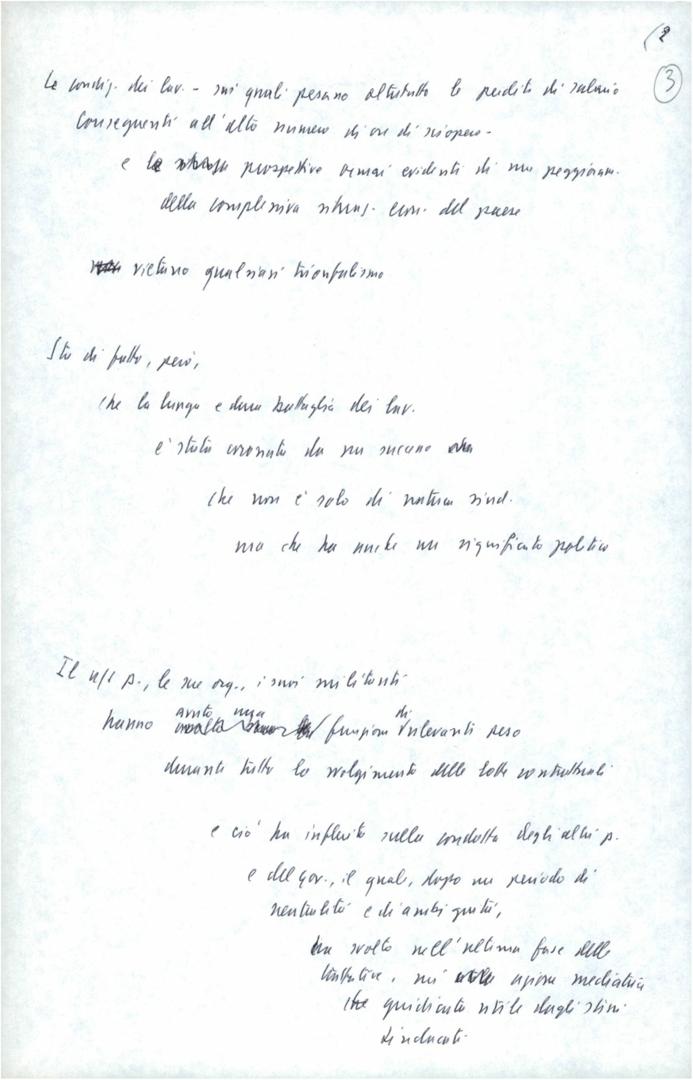 2
3
Le condiz. dei lav. - sui quali pesano oltretutto le perdite di salario
conseguenti all'alto numero di ore di sciopero -
e le prospettive ormai evidenti di un peggioram.
della complessiva situaz. econ. del paese
vietano qualsiasi trionfalismo
Sta di fatto, però,
che la lunga e dura battaglia dei lav.
è stata coronata da un successo
che non è solo di natura sind.
ma che ha anche un significato politico
Il n/s p., le sue org., i suoi militanti
hanno avuto una funzione di rilevante peso
durante tutto lo svolgimento delle lotte contrattuali
e ciò ha influito sulla condotta degli altri p.
e del gov., il quale, dopo un periodo di
neutralità e di ambiguità,
ha svolto nell'ultima fase delle
trattative, un' azione mediatrice
che giudicata utile dagli stessi
sindacati.